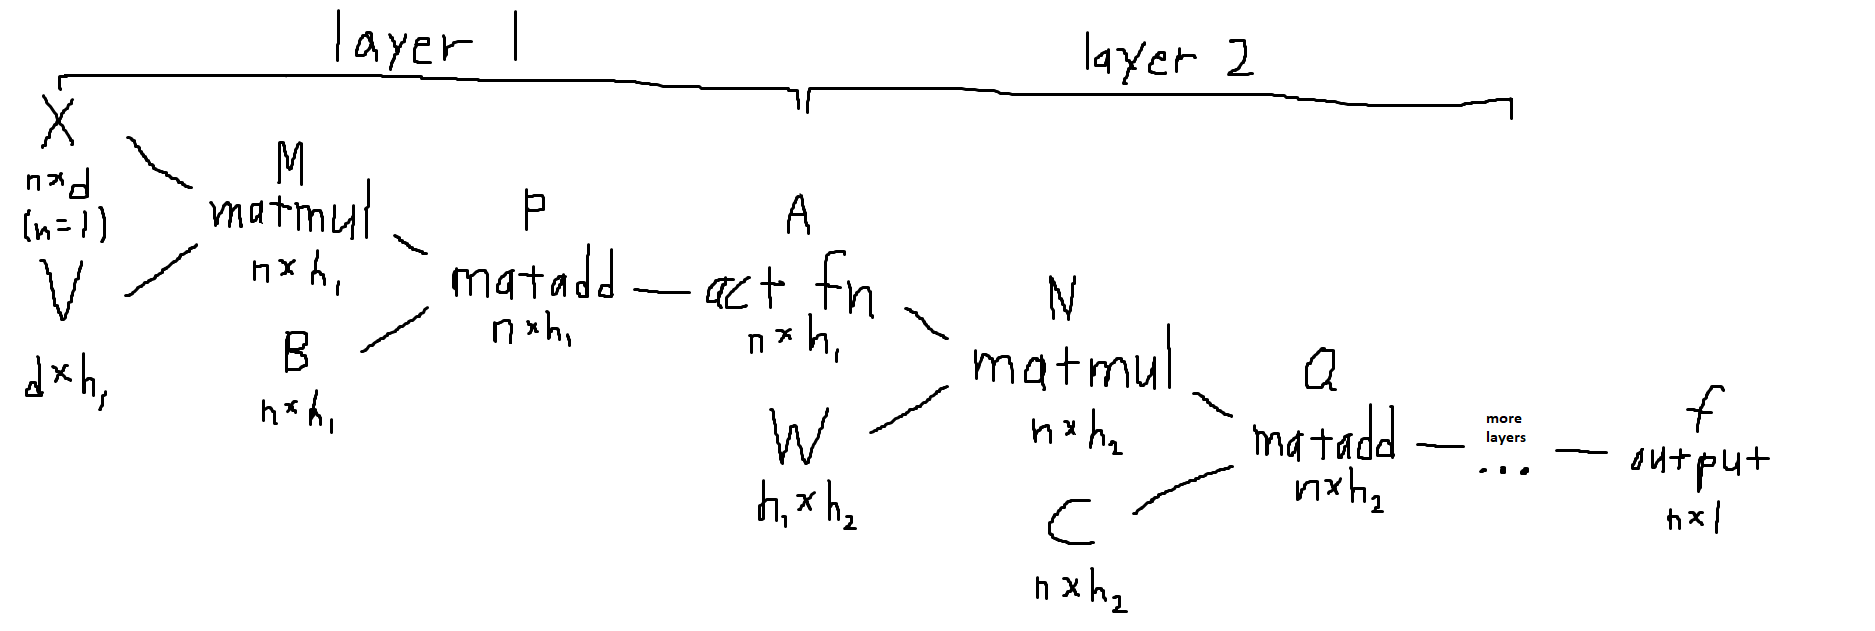 layer 1
layer 2
X
n×d
(n=1)
V
d×h₁
M
matmul
n×h₁
B
n×h₁
P
matadd
n×h₁
A
act fn
n×h₁
W
h₁×h₂
N
matmul
n×h₂
C
n×h₂
Q
matadd
n×h₂
more
layers
...
f
output
n×1